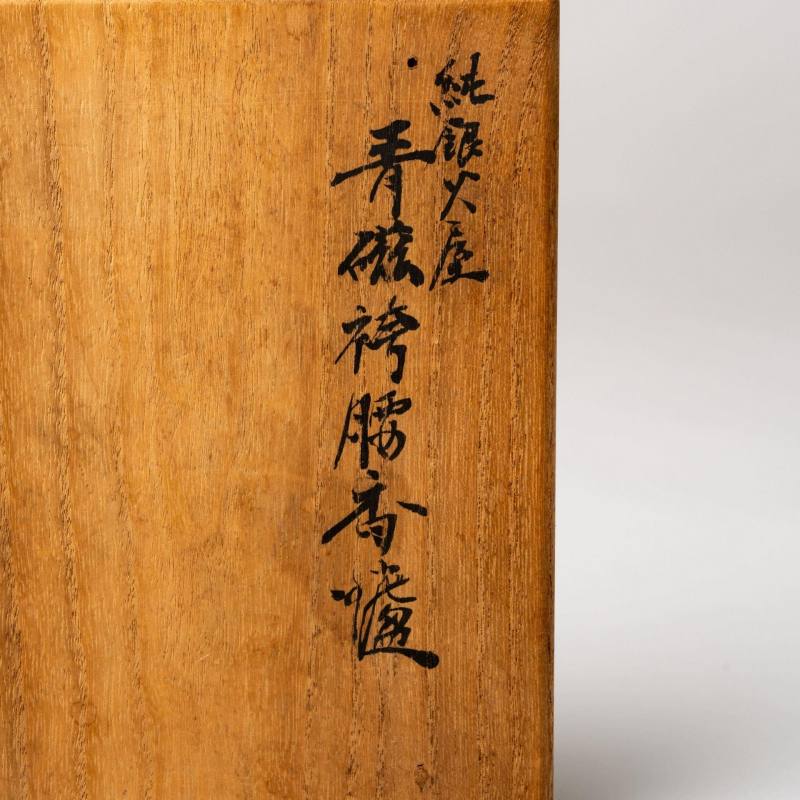 純銀火屋
青磁袴腰香爐